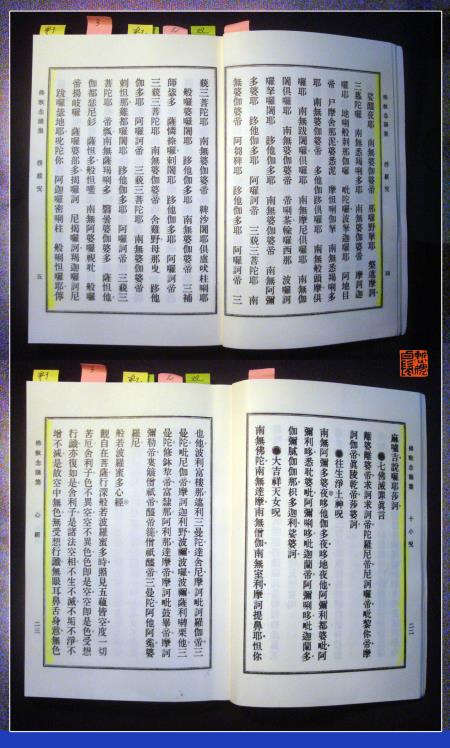 佛教念誦集 楞嚴咒 四
娑醯夜耶 那囉野拏耶 槃遮摩訶
三慕陀囉 南無悉羯唎多耶 南無婆伽婆帝 摩訶迦
囉耶 地唎般剌那伽囉 毗陀囉波拏迦囉耶 阿地目
帝 尸摩舍那泥婆悉泥 摩怛唎伽拏 南無悉羯唎多
耶 南無婆伽婆帝 多他伽跢俱囉耶 南無般頭摩俱
囉耶 南無跋闍囉俱囉耶 南無摩尼俱囉耶 南無伽
闍俱囉耶 南無婆伽婆帝 帝唎茶輸囉西那 波囉訶
囉拏囉闍耶 跢他伽多耶 南無婆伽婆帝 南無阿彌
多婆耶 跢他伽多耶 阿囉訶帝 三藐三菩陀耶 南
無婆伽婆帝 阿芻鞞耶 跢他伽多耶 阿囉訶帝 三
藐三菩陀耶 南無婆伽婆帝 鞞沙闍耶俱盧吠柱唎耶
般囉婆囉闍耶 跢他伽多耶 南無婆伽婆帝 三補
師毖多 薩憐捺囉剌闍耶 跢他伽多耶 阿囉訶帝
三藐三菩陀耶 南無婆伽婆帝 舍雞野母那曳 跢他
伽多耶 阿囉訶帝 三藐三菩陀耶 南無婆伽婆帝
剌怛那雞都囉闍耶 跢他伽多耶 阿囉訶帝 三藐三
菩陀耶 帝瓢南無薩羯唎多 翳曇婆伽婆多 薩怛他
伽都瑟尼釤 薩怛多般怛囕 南無阿婆囉視耽 般囉
帝揚岐囉 薩囉婆部多揭囉訶 尼揭囉訶羯迦囉訶尼
跋囉毖地耶叱陀你 阿迦囉蜜唎柱 般唎怛囉耶儜
佛教念誦集 楞嚴咒 五
佛教念誦集 十小咒 二二
麻嚧吉說囉耶莎訶
七佛滅罪真言
離婆離婆帝求訶求訶帝陀羅尼帝尼訶囉帝毗黎你帝摩
訶伽帝真陵乾帝莎婆訶
往生淨土神咒
南無阿彌多婆夜哆他伽多夜哆地夜他阿彌利都婆毗阿
彌利哆悉耽婆毗阿彌唎哆毗迦蘭帝阿彌唎哆毗迦蘭多
伽彌膩伽伽那枳多迦利娑婆訶
大吉祥天女咒
南無佛陀南無達摩南無僧伽南無室利摩訶提鼻耶怛你
也他波利富樓那遮利三曼陀達舍尼摩訶毗訶羅伽帝三
曼陀毗尼伽帝摩訶迦利野波禰波囉波禰薩利嚩栗他三
曼陀修鉢犂帝富隸那阿利那達摩帝摩訶毗鼓畢帝摩訶
彌勒帝婁簸僧祇帝醯帝簁僧祇醯帝三曼陀阿他阿㝹婆
羅尼
般若波羅蜜多心經
觀自在菩薩行深般若波羅蜜多時照見五蘊皆空度一切
苦厄舍利子色不異空空不異色色即是空空即是色受想
行識亦復如是舍利子是諸法空相不生不滅不垢不淨不
增不減是故空中無色無受想行識無眼耳鼻舌身意無色
佛教念誦集 心經 二三